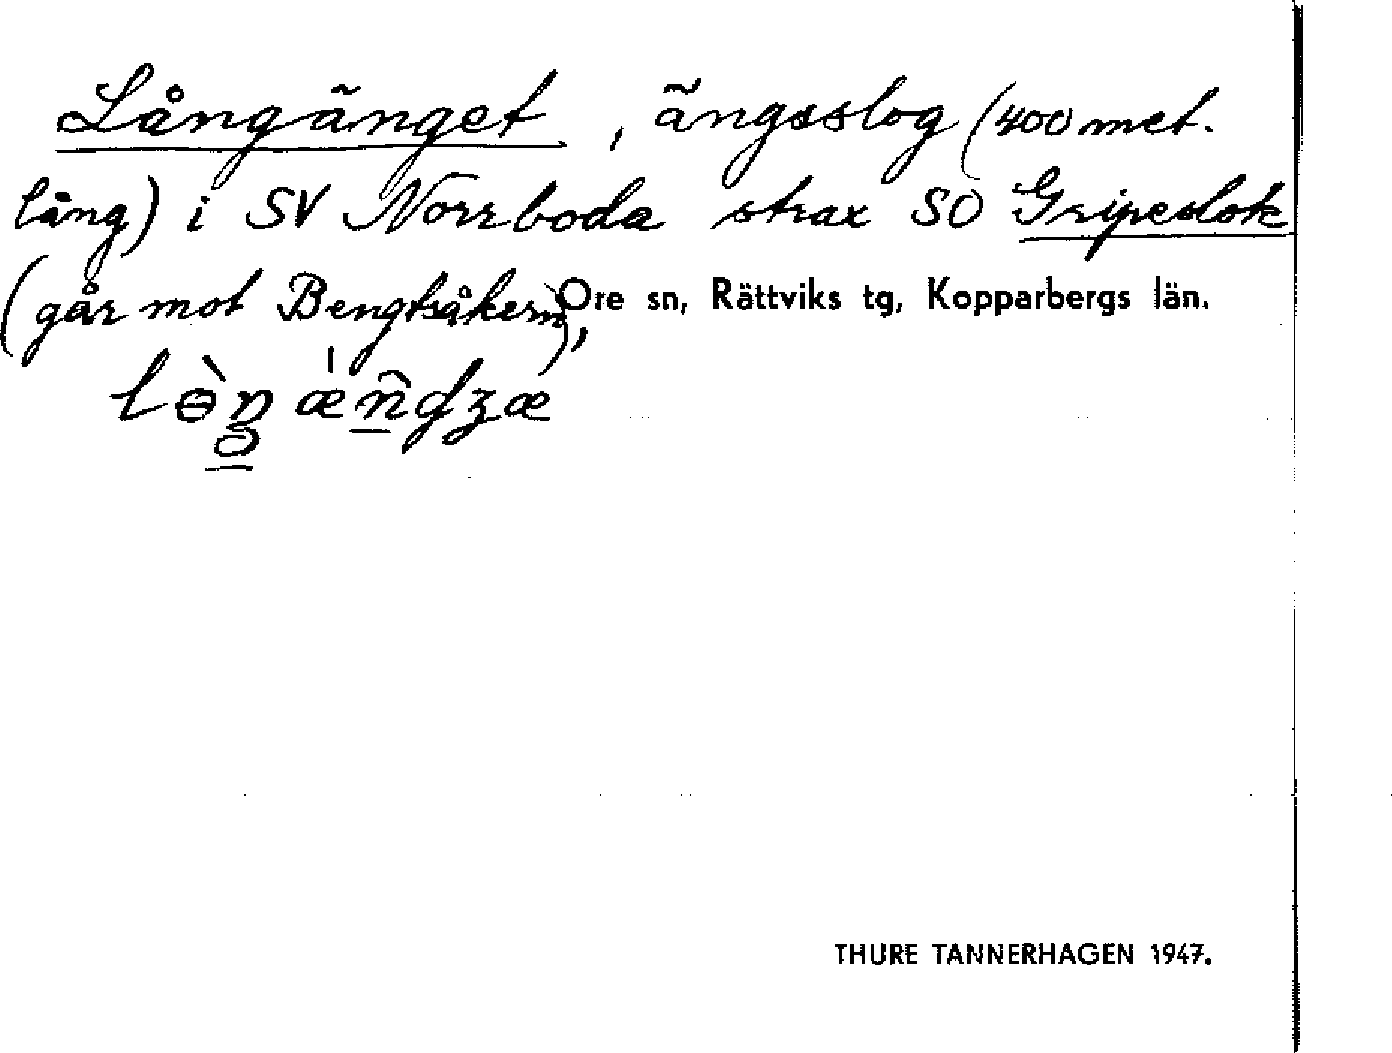 Långänget, ängsslog (400 met.
lång) i SV Norrboda strax SO Gripeslok
(går mot Bengtsåkern), Ore sn, Rättviks tg, Kopparbergs län.
THURE TANNERHAGEN 1947.